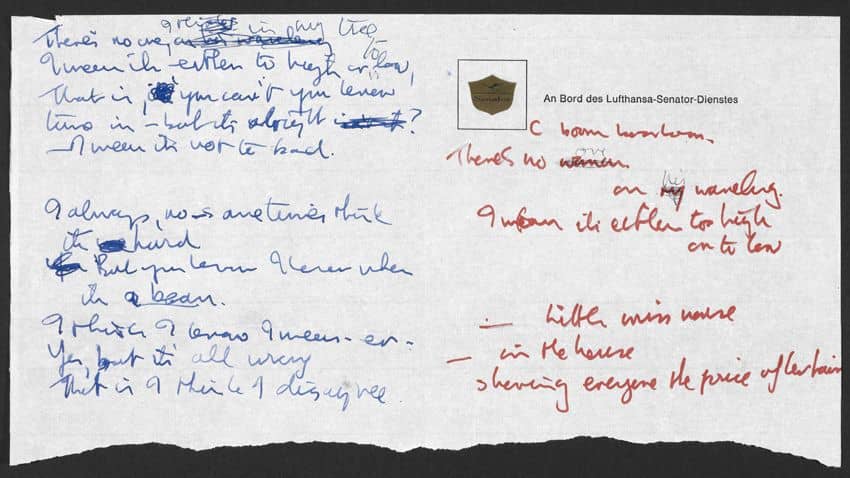 I think in my tree
There's no one
I mean it's either to high or low,
That is you can't you know
tune in – but it's alright
– I mean it's not to bad.
I always, no – sometimes think
it's
But you know I know when
it's a
I think I know I mean – er –
Yes, but it's all wrong
That is I think I disagree.
Senator
An Bord des Lufthansa-Senator-Dienstes
There's no one
on my
I mean it's either too high
or to low
– little miss
– in the house
showing everyone the price of